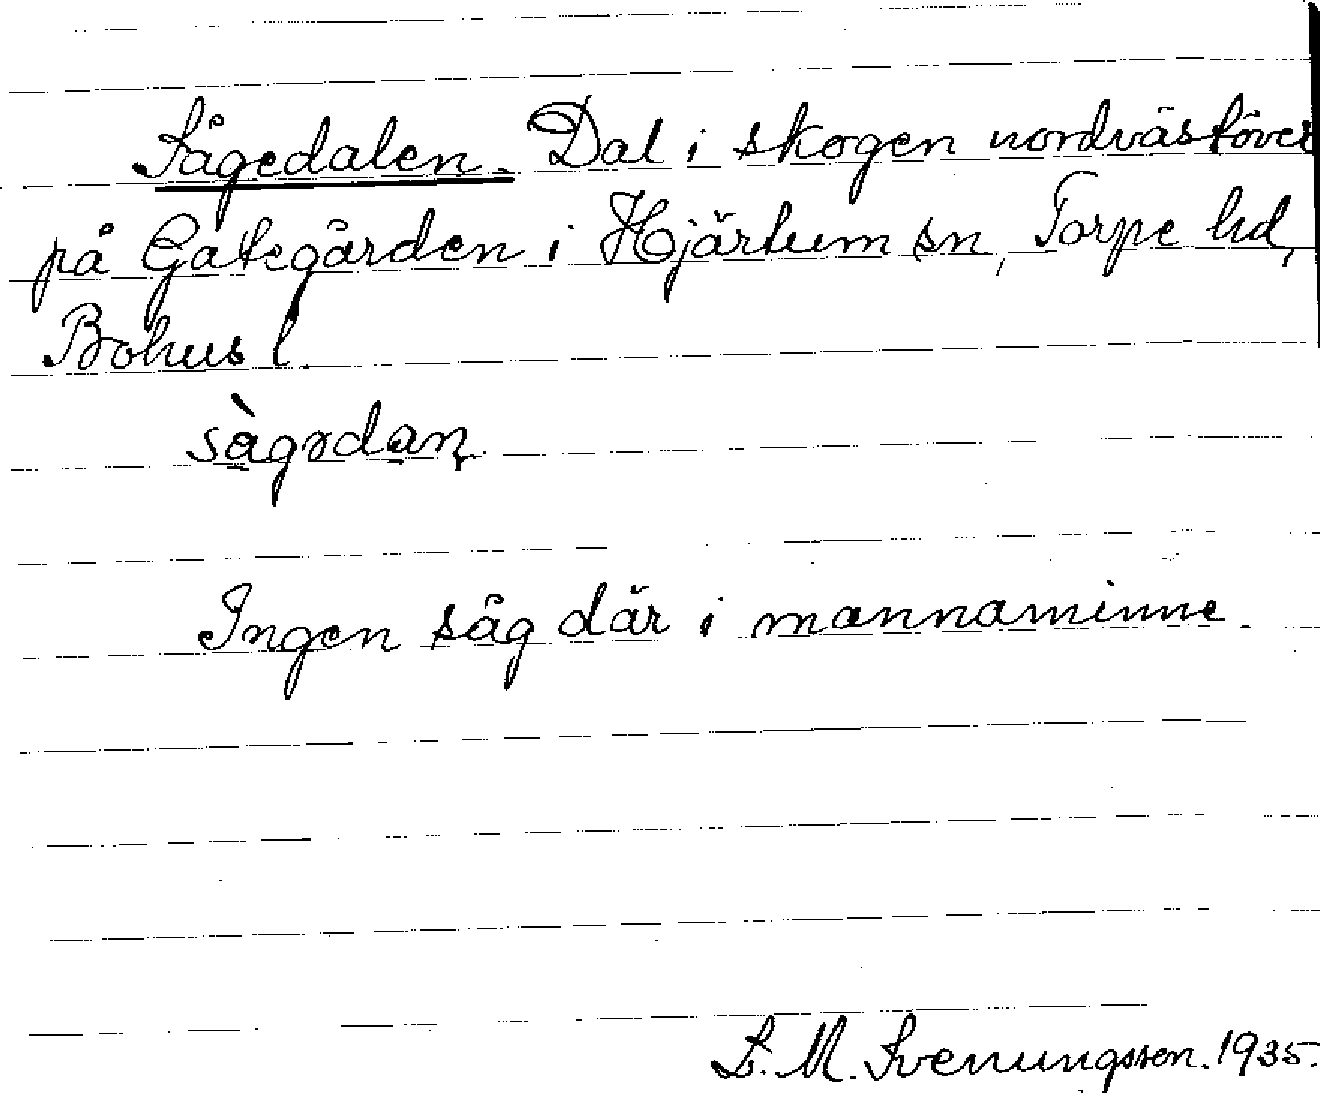 Sågedalen. Dal i skogen nordväst över
på Gategården i Hjärtum sn, Torpe hd,
Bohus l.
sàgədan
Ingen såg där i mannaminne.
S. M. Svenungsson. 1935.